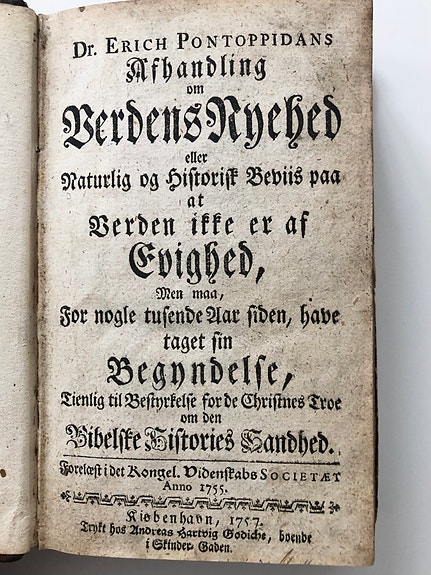 Dr. ERICH PONTOPPIDANS
Afhandling
om
Verdens Nyehed
eller
Naturlig og Historisk Beviis paa
at
Verden ikke er af
Evighed,
Men maa,
For nogle tusende Aar siden, have
taget sin
Begyndelse,
Tienlig til Bestyrkelse for de Christnes Troe
om den
Bibelske Histories Sandhed.
Forelæst i det Kongel. Videnskabs SOCIETÆT
Anno 1755.
Kiøbenhavn, 1757.
Trykt hos Andreas Hartvig Godiche, boende
i Skinder-Gaden.